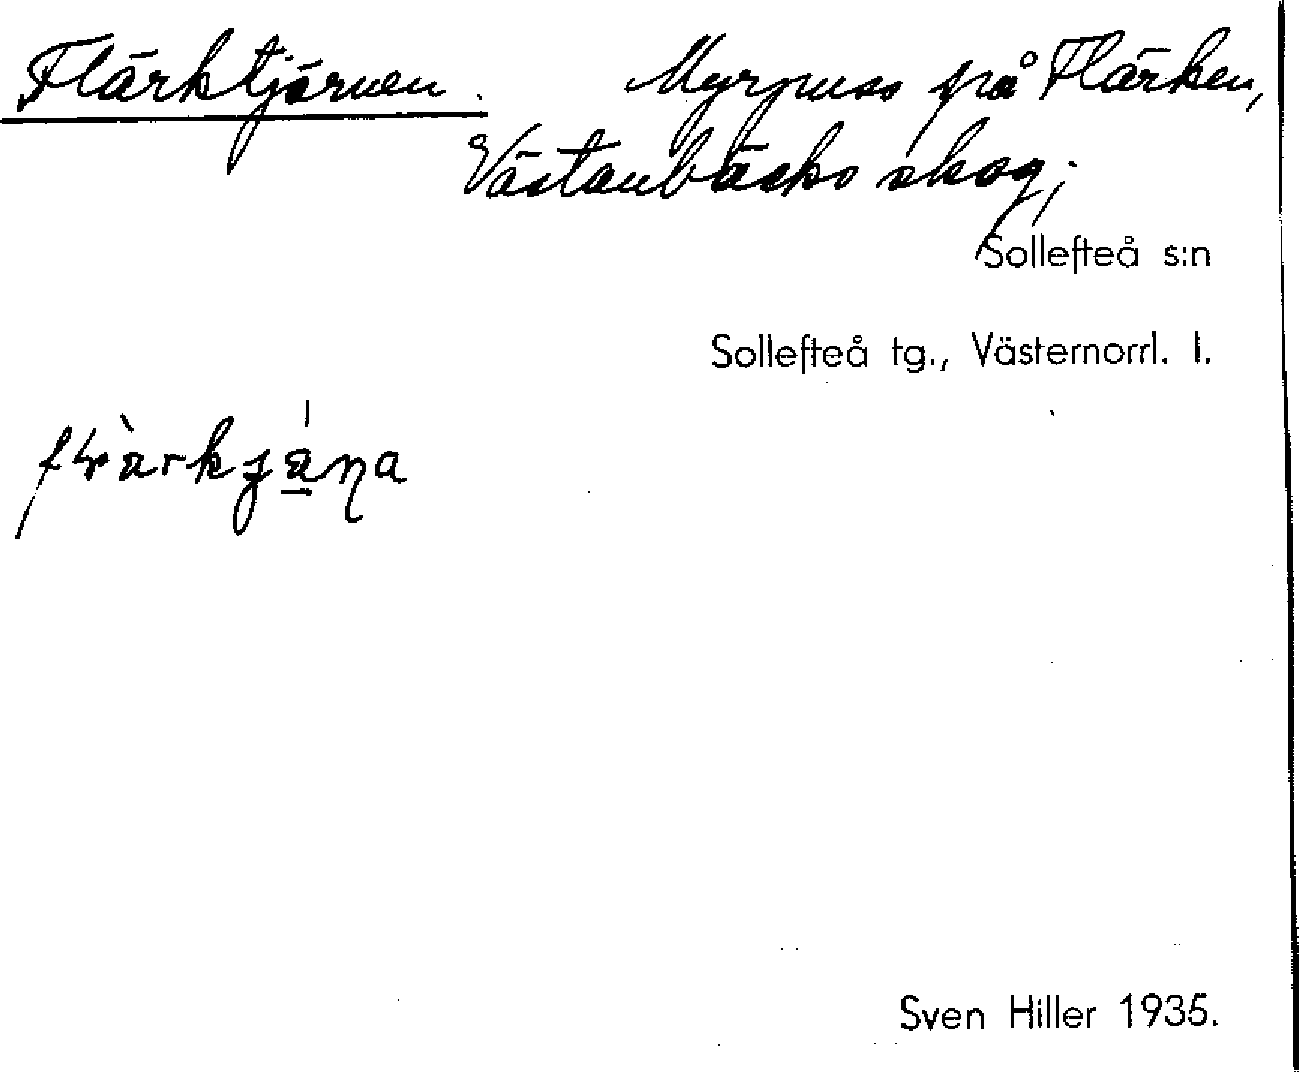 Flärktjärnen. Myrpuss på Flärken,
Västanbäcks skog;
Sollefteå s:n
Sollefteå tg., Västernorrl. l.
Sven Hiller 1935.